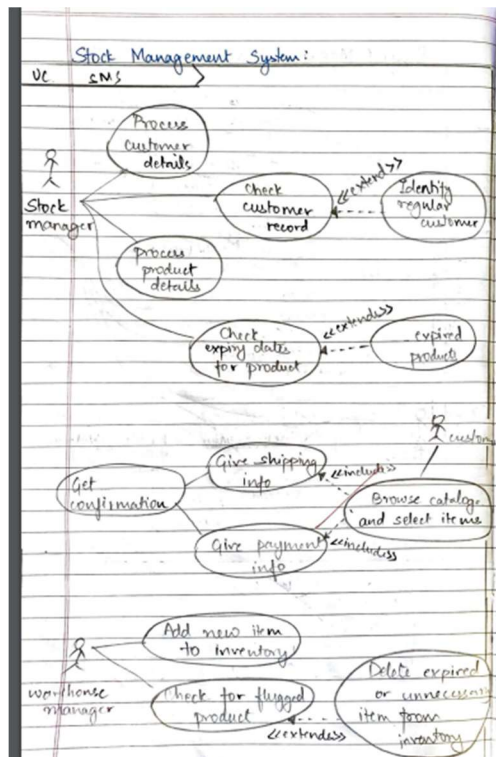 Stock Management System:
UC SMS
Process
customer
details
Stock
manager
Check
customer
record
<<extend>>
Identify
regular
customer
Process
product
details
Check
expiry dates
for product
<<extends>>
expired
products
custom
Give shipping
info
<<includes>>
Get
confirmation
Browse catalogs
and select items
Give payment
info
<<includes>>
Add new item
to inventory
warehouse
manager
Check for flugged
product
<<extends>>
Delete expired
or unnecessary
item from
inventory